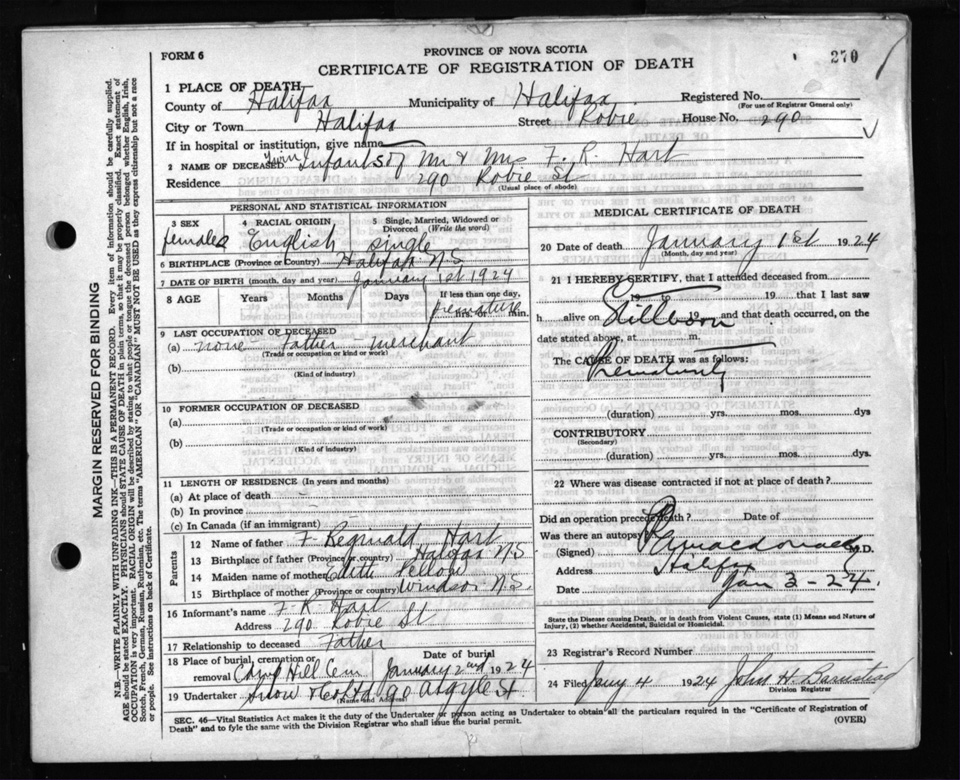 FORM 6
PROVINCE OF NOVA SCOTIA
270
CERTIFICATE OF REGISTRATION OF DEATH
1 PLACE OF DEATH
County of Halifax Municipality of Halifax Registered No.
(For use of Registrar General only)
City or Town Halifax Street Robie House No. 290
If in hospital or institution, give name
2 NAME OF DECEASED Twin Infants of Mr & Mrs F. R. Hart
Residence 290 Robie St
(Usual place of abode)
PERSONAL AND STATISTICAL INFORMATION
3 SEX females
4 RACIAL ORIGIN English
5 Single, Married, Widowed or Divorced (Write the word) single
6 BIRTHPLACE (Province or Country) Halifax N.S.
7 DATE OF BIRTH (month, day and year) January 1st 1924
8 AGE Years Months Days If less than one day, premature min.
9 LAST OCCUPATION OF DECEASED
(a) none Father - merchant
(Trade or occupation or kind or work)
(b)
(Kind of industry)
10 FORMER OCCUPATION OF DECEASED
(a)
(Trade or occupation or kind of work)
(b)
(Kind of industry)
11 LENGTH OF RESIDENCE (In years and months)
(a) At place of death
(b) In province
(c) In Canada (if an immigrant)
Parents
12 Name of father F. Reginald Hart
13 Birthplace of father (Province or country) Halifax N.S.
14 Maiden name of mother Edith Pellow
15 Birthplace of mother (Province or country) Windsor N.S.
16 Informant's name F. R. Hart
Address 290 Robie St
17 Relationship to deceased Father
18 Place of burial, cremation or removal Camp Hill Cem
Date of burial January 2nd 1924
19 Undertaker Snow & Co Ltd 90 Argyle St
(Name and Address)
MEDICAL CERTIFICATE OF DEATH
20 Date of death January 1st 1924
(Month, day and year)
21 I HEREBY CERTIFY, that I attended deceased from
19 to 19 that I last saw
h alive on Stillborn 19 and that death occurred, on
date stated above, at m.
The CAUSE OF DEATH was as follows:
Prematurity
(duration) yrs. mos. dys
CONTRIBUTORY
(Secondary)
(duration) yrs. mos. dys.
22 Where was disease contracted if not at place of death?
Did an operation precede death? Date of
Was there an autopsy
(Signed) Macdonald M.D.
Address Halifax
Date Jan 3 - 24.
State the Disease causing Death, or in death from Violent Causes, state (1) Means and Nature of
Injury, (2) whether Accidental, Suicidal or Homicidal.
23 Registrar's Record Number
24 Filed Jany 4 1924 John H. Barnstead
Division Registrar
SEC. 46—Vital Statistics Act makes it the duty of the Undertaker or person acting as Undertaker to obtain all the particulars required in the "Certificate of Registration of
Death" and to fyle the same with the Division Registrar who shall issue the burial permit.
(OVER)
MARGIN RESERVED FOR BINDING
N.B.—WRITE PLAINLY WITH UNFADING INK—THIS IS A PERMANENT RECORD. Every item of information should be carefully supplied.
AGE should be stated EXACTLY. PHYSICIANS should STATE CAUSE OF DEATH in plain terms, so that it may be properly classified. Exact statement of
OCCUPATION is very important. RACIAL ORIGIN will be described by stating to what people or tongue the deceased person belonged whether English, Irish,
Scotch, French, German, Russian, Ruthenian, etc. The terms "AMERICAN" or "CANADIAN" MUST NOT BE USED as they express citizenship but not a race
or people. See instructions on back of Certificate.